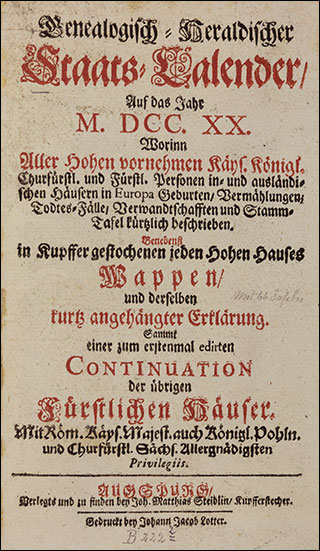 Genealogisch-Heraldischer
Staats-Calender/
Auf das Jahr
M. DCC. XX.
Worinn
Aller Hohen vornehmen Käys. Königl.
Churfürstl. und Fürstl. Personen in- und ausländi-
schen Häusern in Europa Geburten/ Vermählungen/
Todtes-Fälle/ Verwandtschafften und Stamm-
Tafel kürtzlich beschrieben.
Benebenst
in Kupffer gestochenen jeden Hohen Hauses
Wappen/
und derselben
kurtz angehängter Erklärung.
Sammt
einer zum erstenmal edirten
CONTINUATION
der übrigen
Fürstlichen Häuser.
Mit Röm. Käys. Majest. auch Königl. Pohln.
und Churfürstl. Sächs. Allergnädigsten
Privilegiis.
AUGSPURG/
Verlegts und zu finden bey Joh. Matthias Steidlin/ Kupfferstecher.
Gedruckt bey Johann Jacob Lotter.
B 222